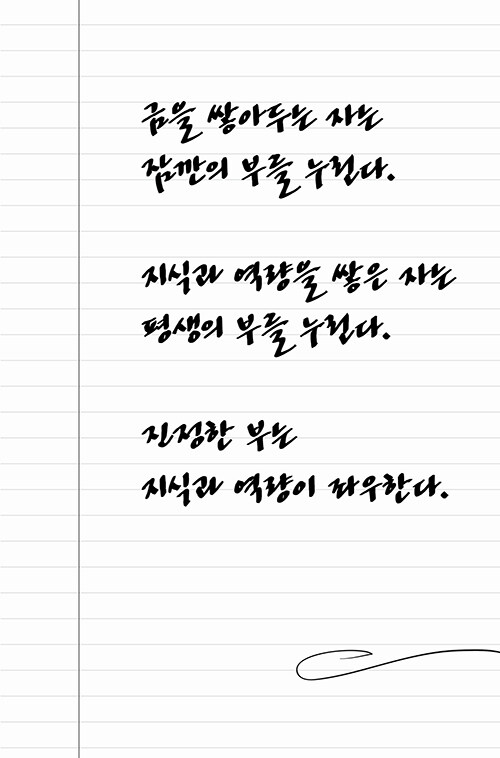 금을 쌓아두는 자는
잠깐의 부를 누린다.
지식과 역량을 쌓은 자는
평생의 부를 누린다.
진정한 부는
지식과 역량이 좌우한다.